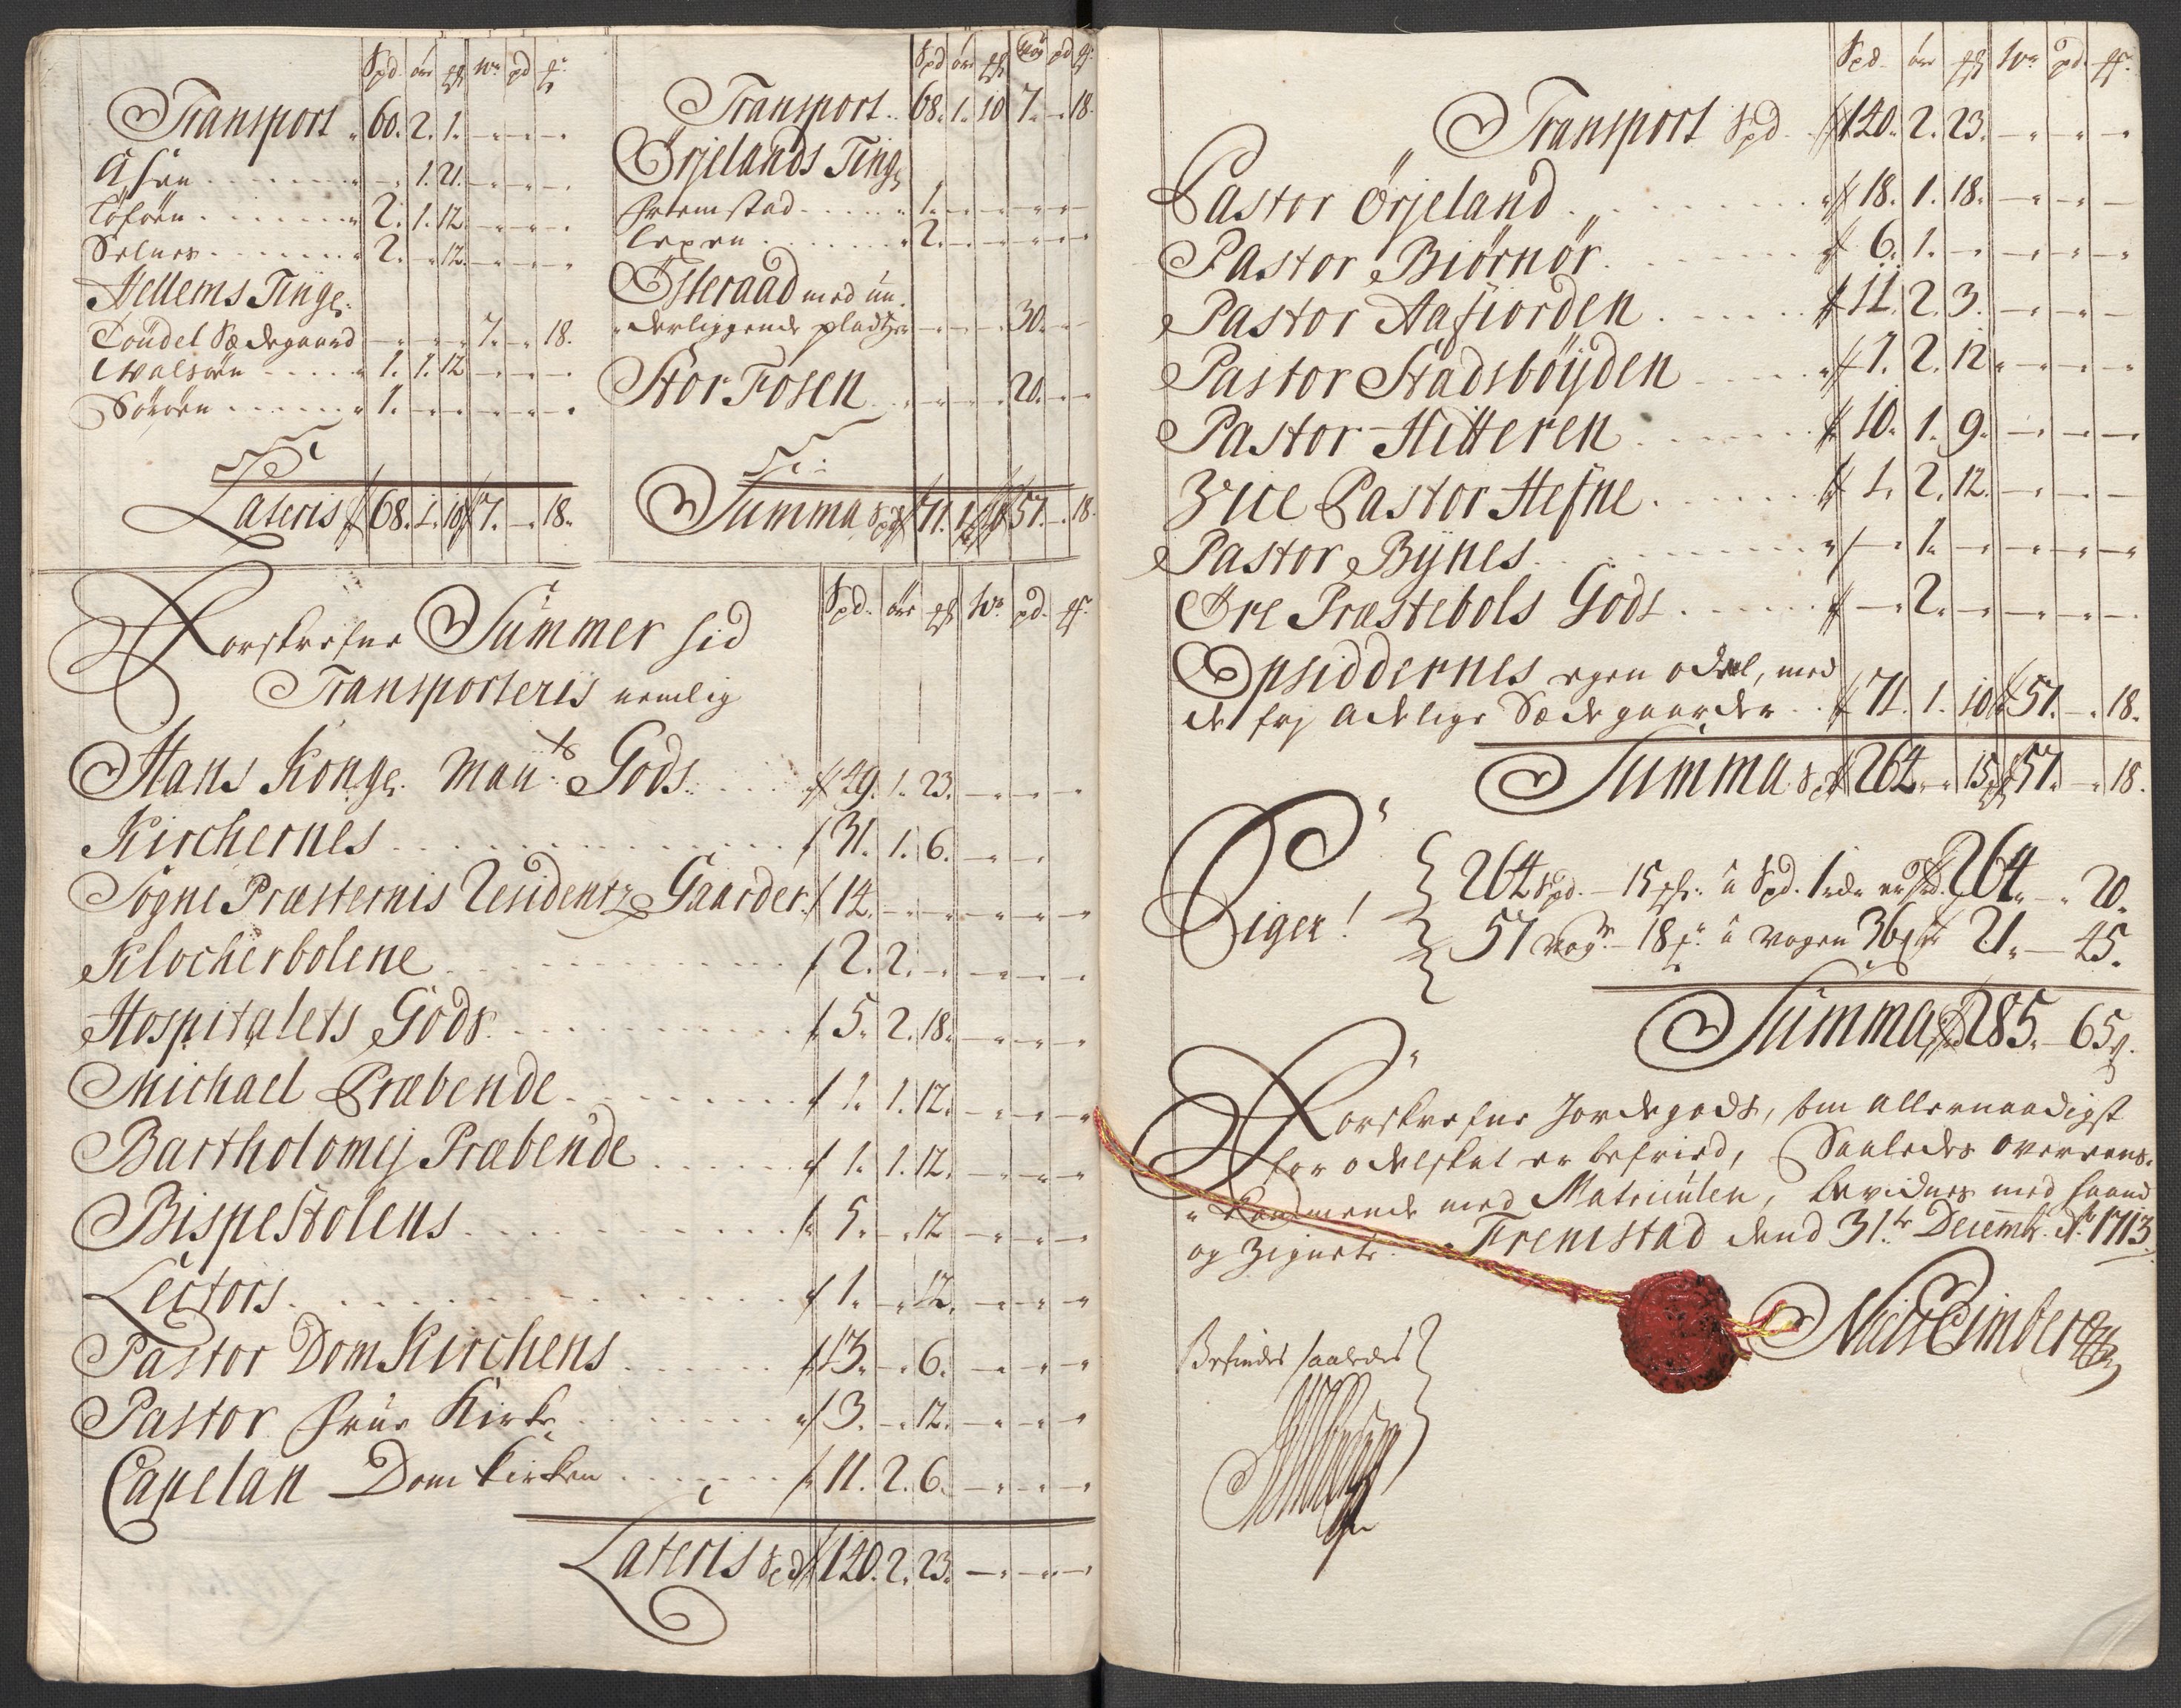 Spd. øre mk W. pd mk
Transport 60. 2. 1. - - -
Åsen - 1. 21. - - -
Tøføen 2. 1. 12. - - -
Selnes 2. - 12. - - -
Hellems Ting
Tøndel Sædegaard - - - 7. - 18.
Walsøen 1. 1. 12 - - -
1. - - - - -
Lateris 68. 1. 10 7. - 18.
Spd øre mk Wog pd mk
Transport 68. 1. 10 7. - 18.
Ørjelands Ting
Fremstad 1. - - - - -
Lexen 2. - - - - -
Østeraad med un-
derliggende pladtzer - - - 30. - -
Stor Fosen - - - 20. - -
Summa Spd 71. 1. 10 57. - 18.
Spd. øre mk W. pd. mk
Forskrefne Summer hid
Transporteris nemlig
Hans Kong. May.ts Gods 49. 1. 23. - - -
Kirchernes 31. 1. 6. - -
Sogne Præsternis Residentz Gaarder 14. - - - - -
Klocherbolene 2. 2. - - - -
Hospitalets Gods 5. 2. 18. - - -
Michael Præbende 1. 1. 12. - - -
Bartholomij Præbende 1. 1. 12. - - -
Bispestolens 5. - 12 - - -
Lectors 1. - 12. - - -
Pastor Dom Kirchens 13. - 6. - - -
Pastor Frue Kirke 3. - 12. - - -
Capelan Dom Kirken 11. 2. 6. - - -
Lateris Spd 140. 2. 23. - - -
Spd. øre mk W. pd. mk
Transport Spd 140. 2. 23. - - -
Pastor Ørjeland 18. 1. 18. - - -
Pastor Biørnør 6. 1. - - - -
Pastor Aafiorden 11. 2. 3. - - -
Pastor Stadsbøyden 7. 2. 12 - - -
Pastor Hitteren 10. 1. 9. - - -
Vice Pastor Hefne 1. 2. 12. - - -
Pastor Bynes - 1. - - - -
Øre Præstebols Gods - 2. - - - -
Opsiddernes egen odel, med
de frj Adelige Sædegaarder 71. 1. 10 57. - 18.
Summa Spd 264. - 15 57. - 18.
Siger! 264 Spd. - 15 mk. a Spd. 1 rd. er 264. - 20.
57 Wog - 18 mk a Wogen 36 s er 21. - 45.
Summa 285. - 65 s.
Forskrefne Jordegods, som allernaadigst
for odelskat er befried, Saaledes overeens-
kommende med Matriculen, bevidnes med haand
og Zignete. Fremstad dend 31.te Decembr. Ao. 1713
Niels Cimber
Befindes saaledes